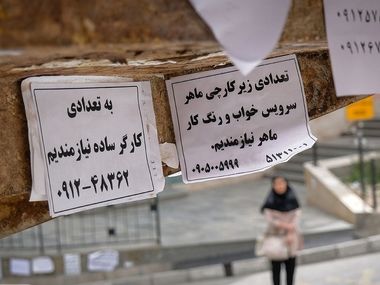 به تعدادی
کارگر ساده نیازمندیم
۰۹۱۲-۴۸۳۶۲
تعدادی زیر کارچی ماهر
سرویس خواب و رنگ کار
ماهر نیازمندیم.
۰۹۰۵۰۰۵۹۹۹
۰۹۱۲۵۷
۰۹۱۲۶۷